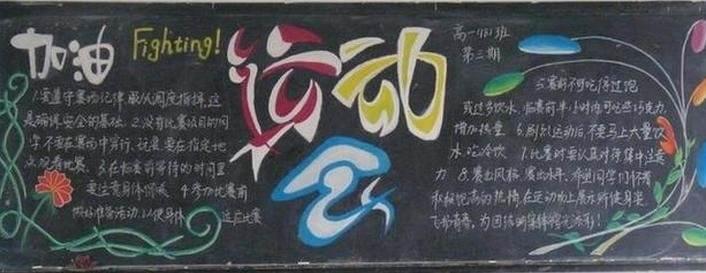 加油 Fighting!
运动会
高一(18)班
第三期
1.要遵守赛场纪律,服从调度指挥,这
是确保安全的基础。2.没有比赛项目的同
学不要在赛场中穿行、玩耍,要在指定地
点观看比赛。3.在临赛前等待的时间里
要注意身体保暖。4.参加比赛前
做好准备活动,以使身体 适应比赛
5.赛前不可吃得过饱
或过多饮水。临赛前半小时内可吃些巧克力,
增加热量。6.剧烈运动后,不要马上大量饮
水、吃冷饮。7.比赛时要认真对待集中注意
力。8.赛出风格,赛出水平,希望同学们怀着
饱满的热情,在运动场上展示矫健身姿
飞扬青春,为团体的集体增光添彩!